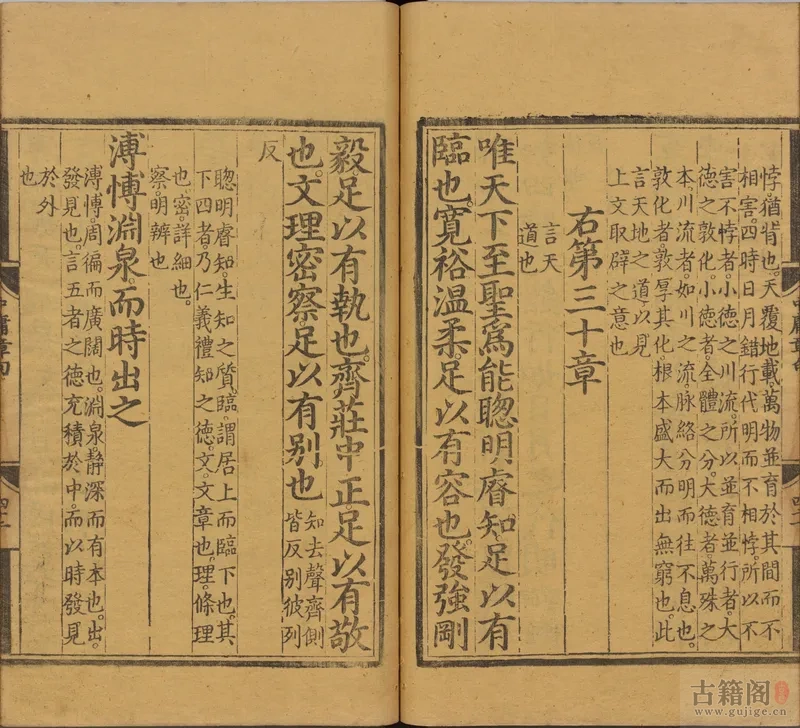 悖猶背也。天覆地載萬物並育於其間而不
相害。四時日月錯行代明而不相悖。所以不
害不悖者。小德之川流。所以並育並行者。大
德之敦化。小德者。全體之分。大德者。萬殊之
本。川流者。如川之流。脉絡分明而往不息也。
敦化者。敦厚其化。根本盛大而出無窮也。此
言天地之道以見
上文取辟之意也
右第三十章
言天
道也
唯天下至聖爲能聰明睿知。足以有
臨也。寬裕温柔。足以有容也。發強剛
毅。足以有執也。齊莊中正。足以有敬
也。文理密察。足以有别也
知去聲齊側
皆反别彼列
反
聰明睿知。生知之質。臨謂居上而臨下也。其
下四者。乃仁義禮知之德。文。文章也。理。條理
也。密。詳細也。
察。明辨也
溥愽淵泉。而時出之
溥愽。周徧而廣闊也。淵泉。靜深而有本也。出。
發見也。言五者之德充積於中。而以時發見
於外
也
古籍阁
www.gujige.cn